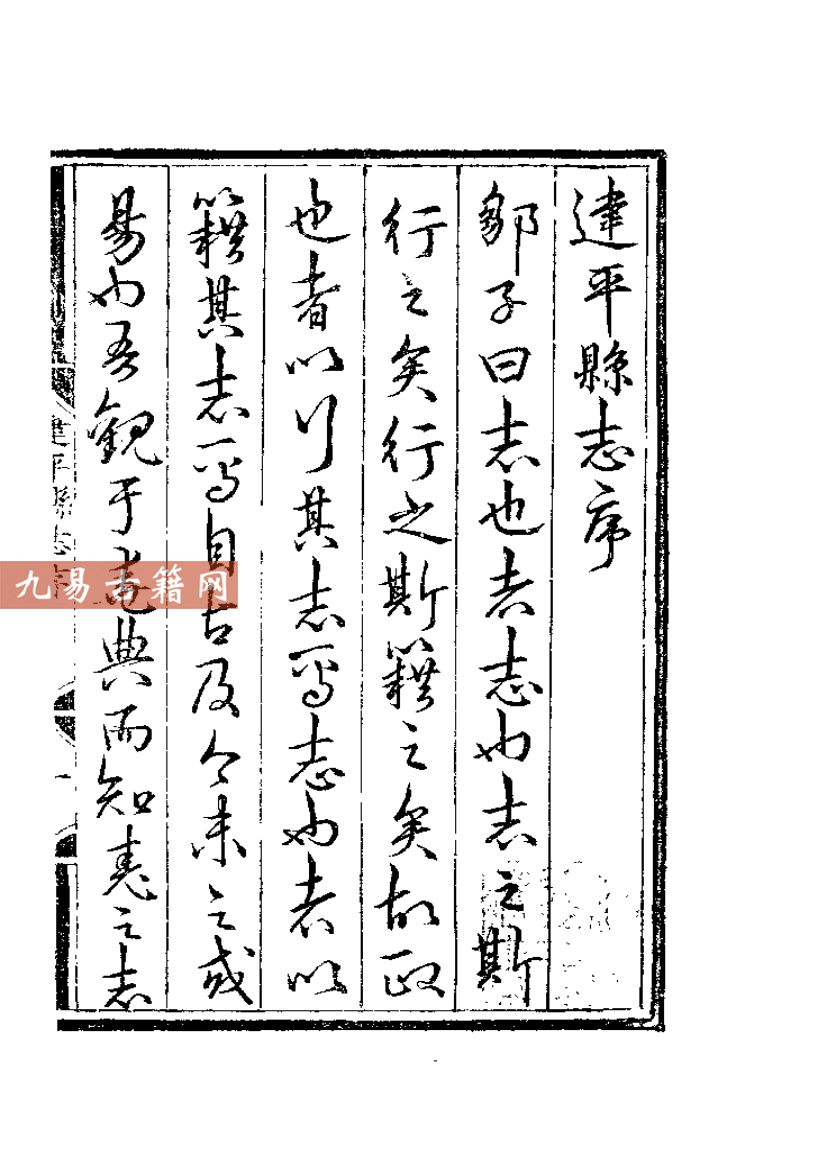 建平縣志序
鄒子曰志也者志也志之斯
行之矣行之斯籍之矣故政
也者以行其志焉志也者以
籍其志焉自古及今未之或
易也吾觀于堯典而知堯之志
建平縣志序
一
九易古籍网